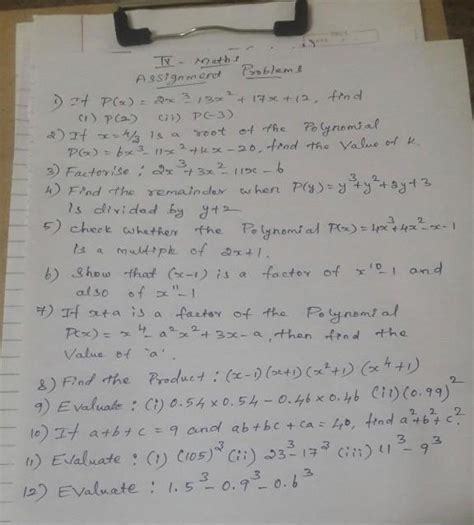 IX - Maths
Assignment Problems
1) If P(x) = 2x³ - 13x² + 17x + 12, find
(i) P(2) (ii) P(-3)
2) If x = 4/3 is a root of the Polynomial
P(x) = 6x³ - 11x² + kx - 20, find the Value of k.
3) Factorise : 2x³ + 3x² - 11x - 6
4) Find the remainder when P(y) = y³ + y² + 2y + 3
is divided by y + 2
5) Check whether the Polynomial P(x) = 4x³ + 4x² - x - 1
is a multiple of 2x + 1.
6) Show that (x-1) is a factor of x¹⁰ - 1 and
also of x¹¹ - 1
7) If x + a is a factor of the Polynomial
P(x) = x⁴ - a²x² + 3x - a, then find the
Value of 'a'.
8) Find the Product : (x-1)(x+1)(x²+1)(x⁴+1)
9) Evaluate : (i) 0.54 x 0.54 - 0.46 x 0.46 (ii) (0.99)²
10) If a+b+c = 9 and ab+bc+ca = 40, find a²+b²+c².
11) Evaluate : (i) (105)³ (ii) 23³ - 17³ (iii) 11³ - 9³
12) Evaluate : 1.5³ - 0.9³ - 0.6³